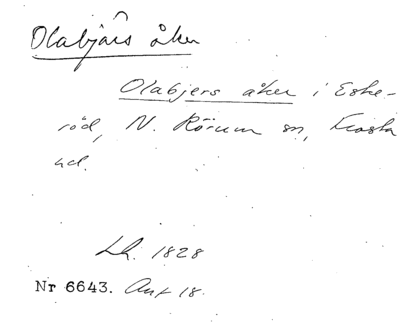 Olabjärs åker
Olabjers åker i Eske-
röd, N. Rörum sn, Frosta
hd.
Lh. 1828
Nr 6643. Ant 18.